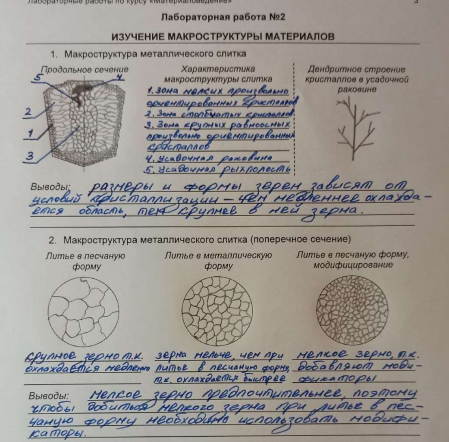 Лабораторные работы по курсу «Материаловедение» 3
Лабораторная работа №2
ИЗУЧЕНИЕ МАКРОСТРУКТУРЫ МАТЕРИАЛОВ
1. Макроструктура металлического слитка
Продольное сечение
5 4
2
1
3
Характеристика
макроструктуры слитка
1. Зона мелких произвольно
ориентированных кристаллов
2. Зона столбчатых кристаллов
3. Зона крупных равноосных
произвольно ориентированных
кристаллов
4. Усадочная раковина
5. Усадочная рыхлость
Дендритное строение
кристаллов в усадочной
раковине
Выводы: размеры и формы зерен зависят от
условий кристаллизации – чем медленнее охлажда-
ется область, тем крупнее в ней зерна.
2. Макроструктура металлического слитка (поперечное сечение)
Литье в песчаную
форму
Литье в металлическую
форму
Литье в песчаную форму,
модифицирование
крупное зерно т.к.
охлаждается медленно
зерна мельче, чем при
литье в песчаную форму,
т.к. охлаждается быстрее
мелкое зерно, т.к.
добавляют моди-
фикаторы
Выводы: мелкое зерно предпочтительнее, поэтому
чтобы добиться мелкого зерна при литье в пес-
чаную форму необходимо использовать модифи-
каторы.